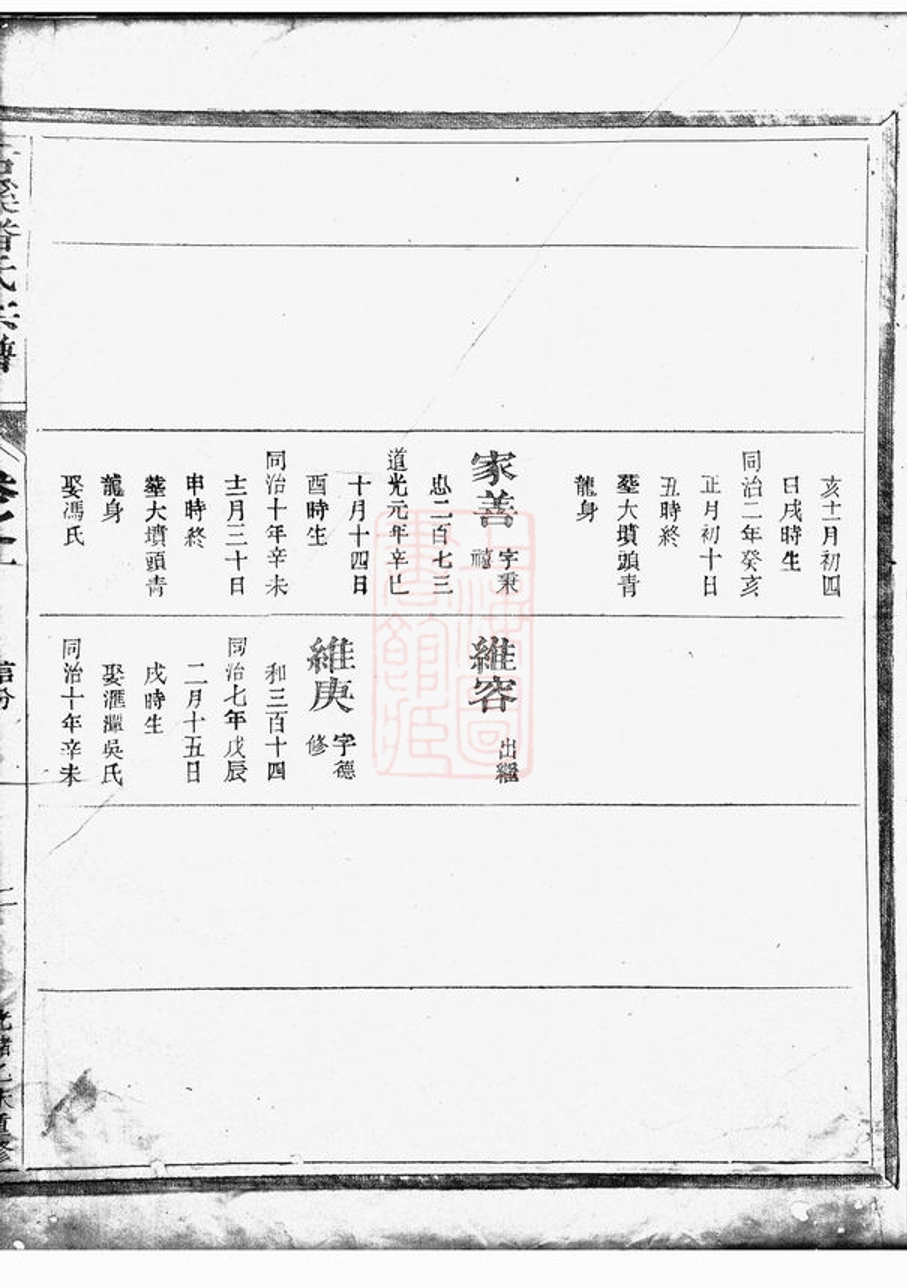 亥十一月初四
日戌時生
同治二年癸亥
正月初十日
丑時終
塟大墳頭青
龍身
家善 字秉禧
忠二百七三
道光元年辛巳
十月十四日
酉時生
同治十年辛未
十二月三十日
申時終
塟大墳頭青
龍身
娶馮氏
維容 出繼
維庚 字德修
和三百十四
同治七年戊辰
二月十五日
戌時生
娶滙瀝吳氏
同治十年辛未
溪潘氏宗譜
卷之
二
光緒乙未重修
上海圖書館藏